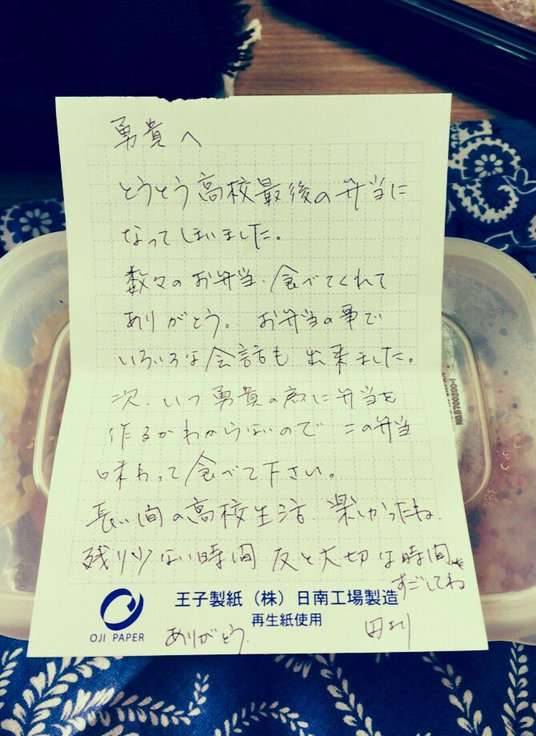 勇貴へ
とうとう高校最後の弁当に
なってしまいました。
数々のお弁当、食べてくれて
ありがとう。お弁当の事で
いろいろな会話も出来ました。
次、いつ勇貴の為に弁当を
作るかわからないので この弁当
味わって食べて下さい。
長い間の高校生活 楽しかったね。
残り少ない時間 友と大切な時間を
すごしてね
OJI PAPER
王子製紙(株)日南工場製造
再生紙使用
ありがとう。
より